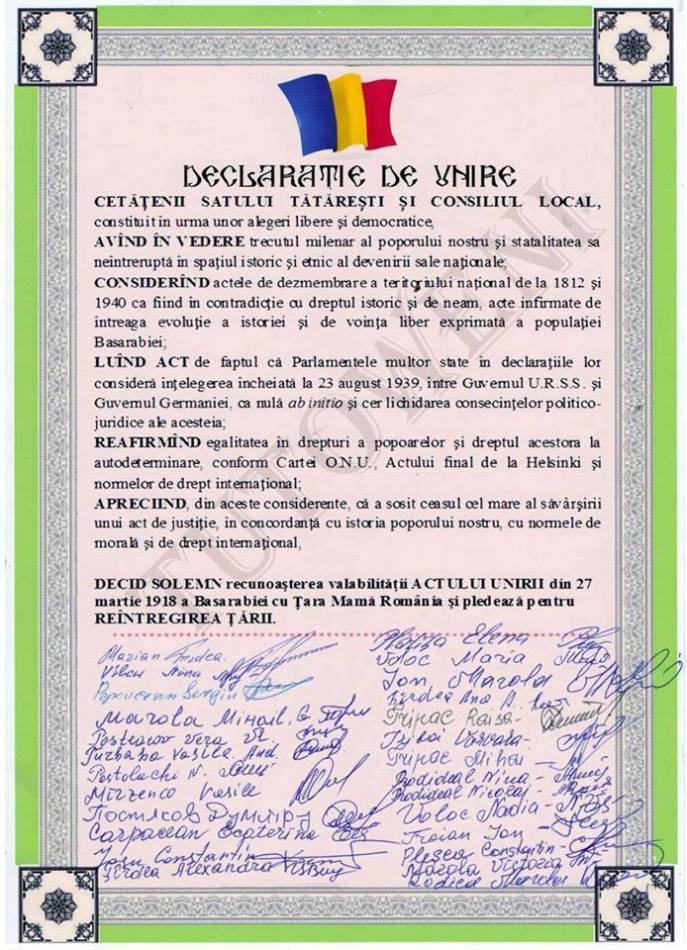 DECLARAȚIE DE UNIRE
CETĂȚENII SATULUI TĂTĂREȘTI ȘI CONSILIUL LOCAL,
constituit în urma unor alegeri libere și democratice,
AVÎND ÎN VEDERE trecutul milenar al poporului nostru și statalitatea sa
neîntreruptă în spațiul istoric și etnic al devenirii sale naționale;
CONSIDERÎND actele de dezmembrare a teritoriului național de la 1812 și
1940 ca fiind în contradicție cu dreptul istoric și de neam, acte infirmate de
întreaga evoluție a istoriei și de voința liber exprimată a populației
Basarabiei;
LUÎND ACT de faptul că Parlamentele multor state în declarațiile lor
consideră înțelegerea încheiată la 23 august 1939, între Guvernul U.R.S.S. și
Guvernul Germaniei, ca nulă ab initio și cer lichidarea consecințelor politico-
juridice ale acesteia;
REAFIRMÎND egalitatea în drepturi a popoarelor și dreptul acestora la
autodeterminare, conform Cartei O.N.U., Actului final de la Helsinki și
normelor de drept internațional;
APRECIIND, din aceste considerente, că a sosit ceasul cel mare al săvârșirii
unui act de justiție, în concordanță cu istoria poporului nostru, cu normele de
morală și de drept internațional,
DECID SOLEMN recunoașterea valabilității ACTULUI UNIRII din 27
martie 1918 a Basarabiei cu Țara Mamă România și pledează pentru
REÎNTREGIREA ȚĂRII.
Marian
Nina
Serghei
Marola Mihail
Vera
Vasile
Postolachi N.
Mirzenco Vasile
Постяков
Carpacean Ecaterina
Ion Constantin
Alexandra
Elena
Voloc Maria
Ion Marola
Ana
Tripac Raisa
Varvara
Tripac Mihai
Prodideal Nina
Prodideal Nicolaj
Voloc Nadia
Troian Ion
Constantin
Marola Victoria
Rodica